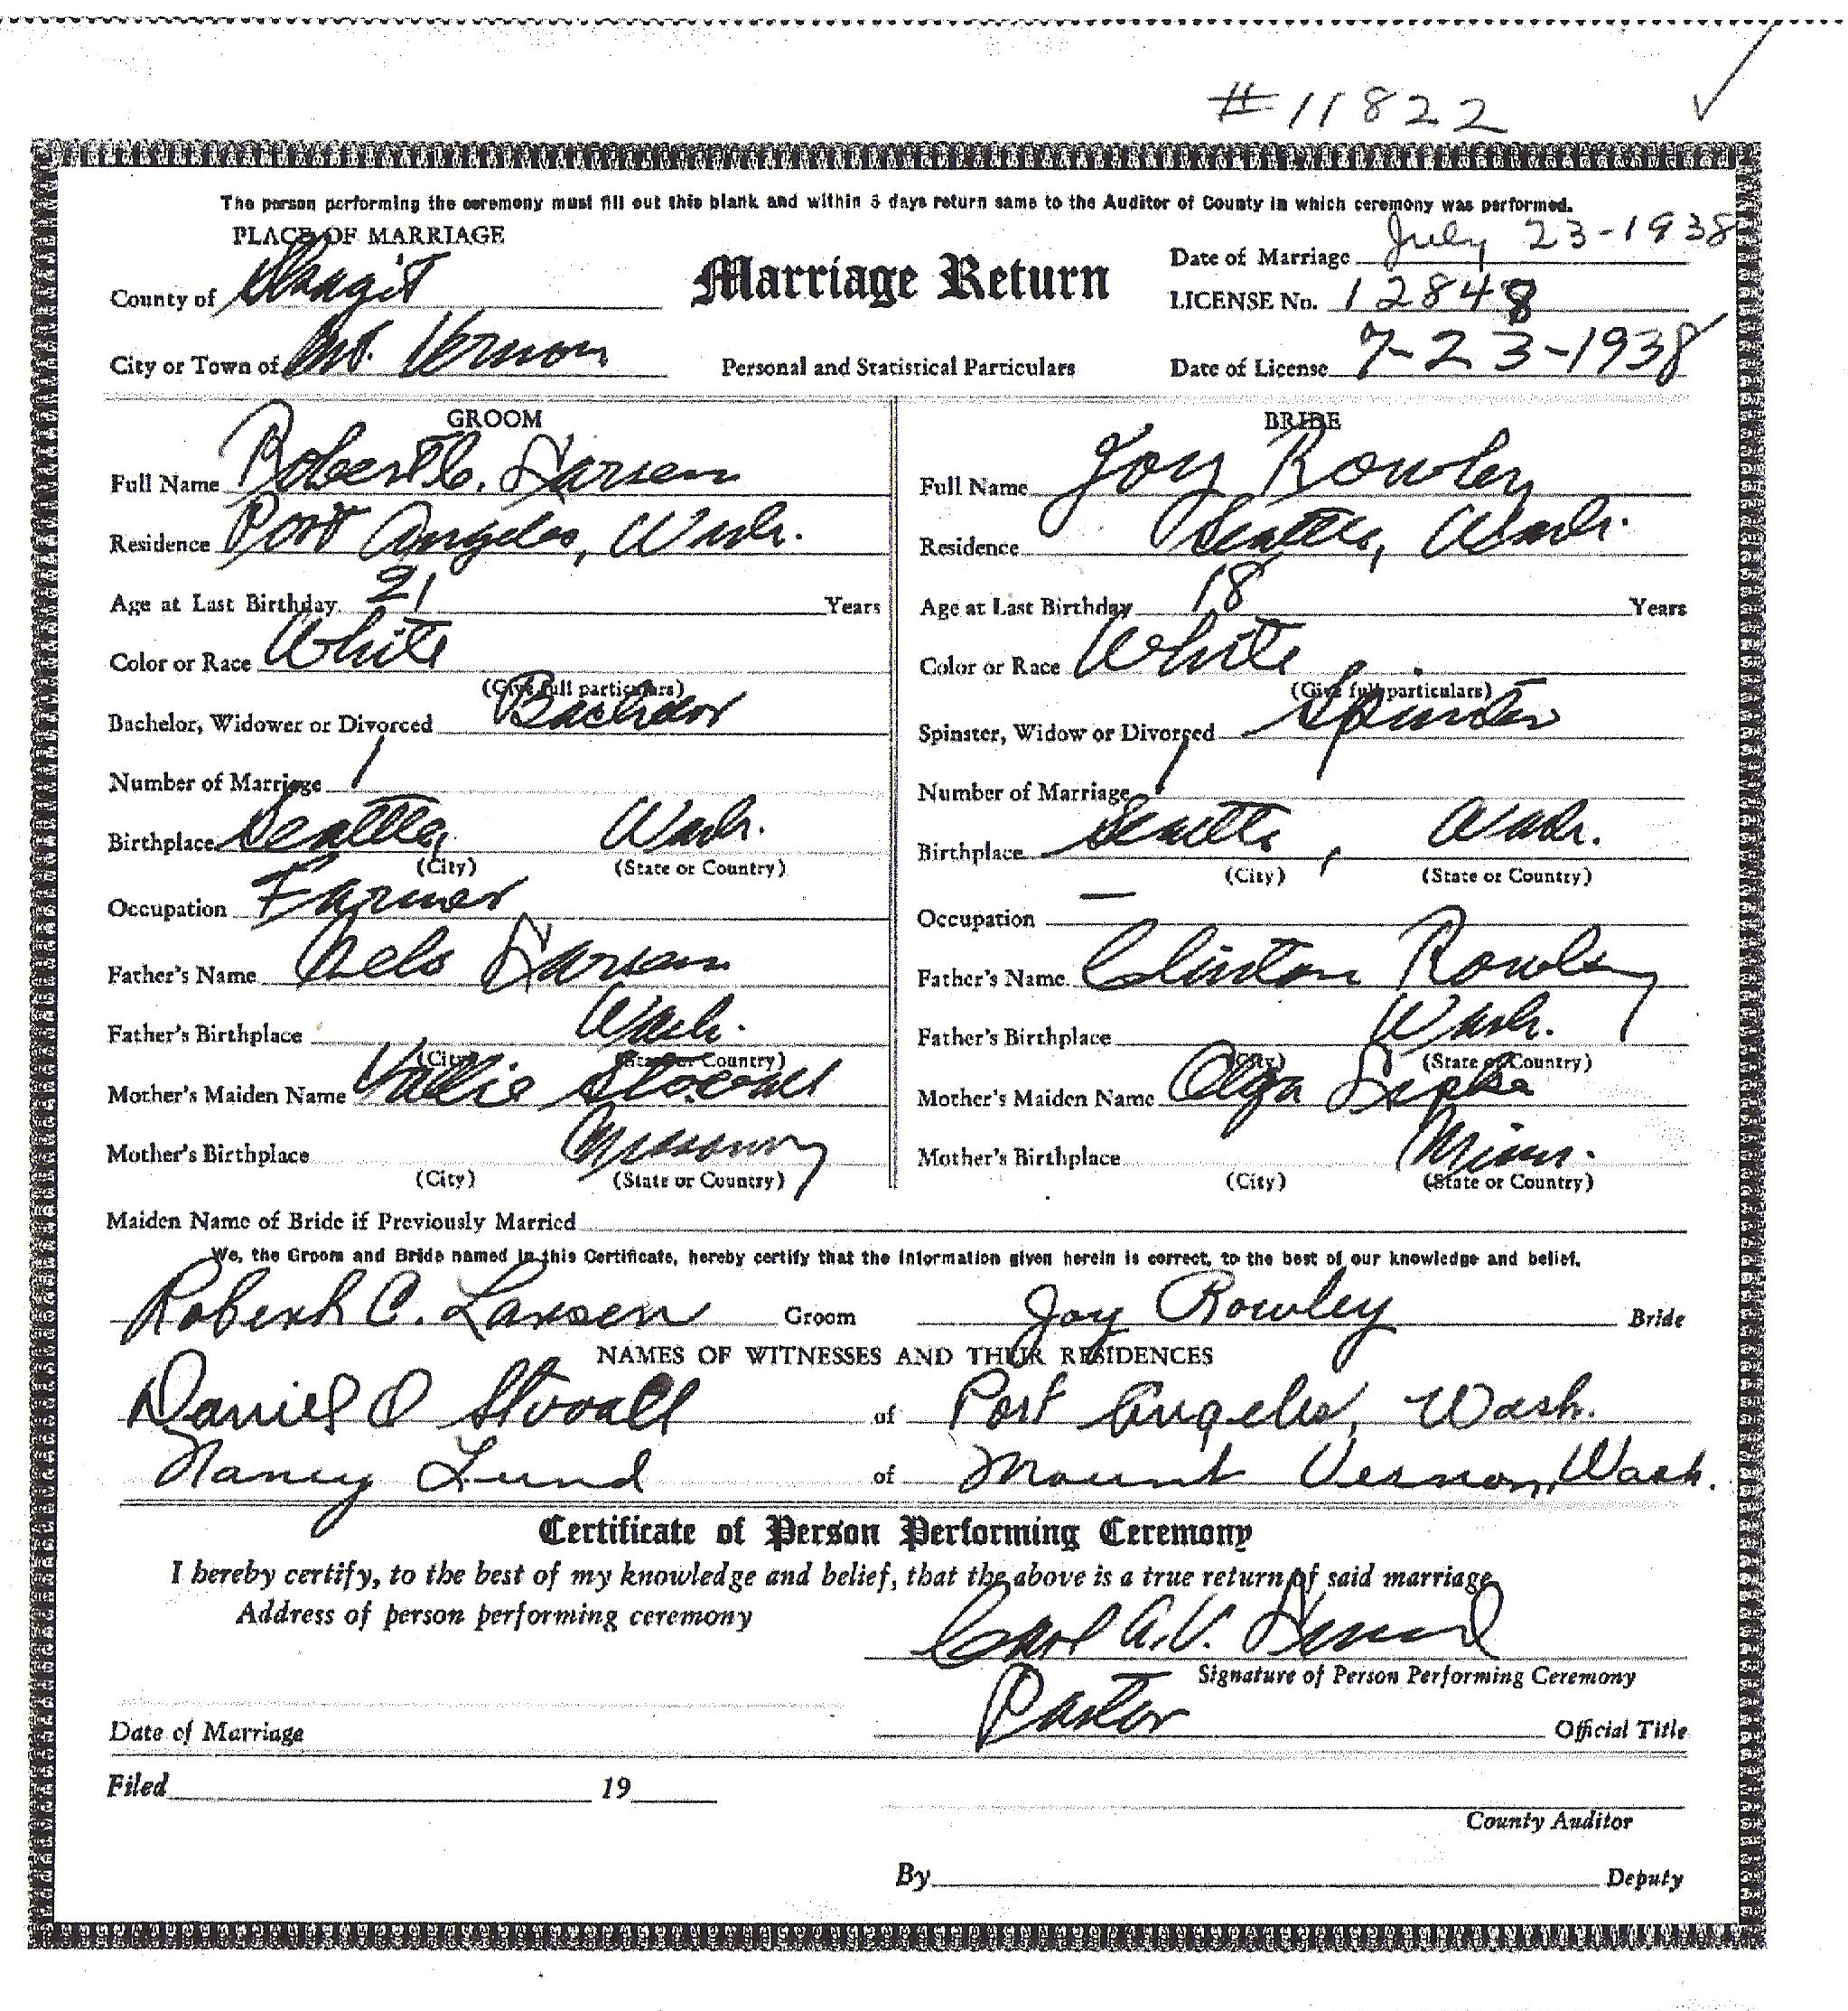 #11822
The person performing the ceremony must fill out this blank and within 5 days return same to the Auditor of County in which ceremony was performed.
PLACE OF MARRIAGE
County of Skagit
City or Town of Mt. Vernon
Marriage Return
Personal and Statistical Particulars
Date of Marriage July 23-1938
LICENSE No. 12848
Date of License 7-23-1938
GROOM
Full Name Robert C. Larsen
Residence Port Angeles, Wash.
Age at Last Birthday 21 Years
Color or Race White
(Give full particulars)
Bachelor, Widower or Divorced Bachelor
Number of Marriage 1
Birthplace Seattle, Wash.
(City) (State or Country)
Occupation Farmer
Father's Name Nels Larsen
Father's Birthplace Wash.
(City) (State or Country)
Mother's Maiden Name Vallie Stovall
Mother's Birthplace Missouri
(City) (State or Country)
BRIDE
Full Name Joy Rowley
Residence Seattle, Wash.
Age at Last Birthday 18 Years
Color or Race White
(Give full particulars)
Spinster, Widow or Divorced Spinster
Number of Marriage 1
Birthplace Seattle, Wash.
(City) (State or Country)
Occupation —
Father's Name Clinton Rowley
Father's Birthplace Wash.
(City) (State or Country)
Mother's Maiden Name Olga
Mother's Birthplace Minn.
(City) (State or Country)
Maiden Name of Bride if Previously Married
We, the Groom and Bride named in this Certificate, hereby certify that the information given herein is correct, to the best of our knowledge and belief.
Robert C. Larsen Groom Joy Rowley Bride
NAMES OF WITNESSES AND THEIR RESIDENCES
Daniel O Stovall of Port Angeles, Wash.
Nancy Lund of Mount Vernon, Wash.
Certificate of Person Performing Ceremony
I hereby certify, to the best of my knowledge and belief, that the above is a true return of said marriage
Address of person performing ceremony
Carl A.V. Lund
Signature of Person Performing Ceremony
Pastor Official Title
Date of Marriage
Filed 19
County Auditor
By Deputy